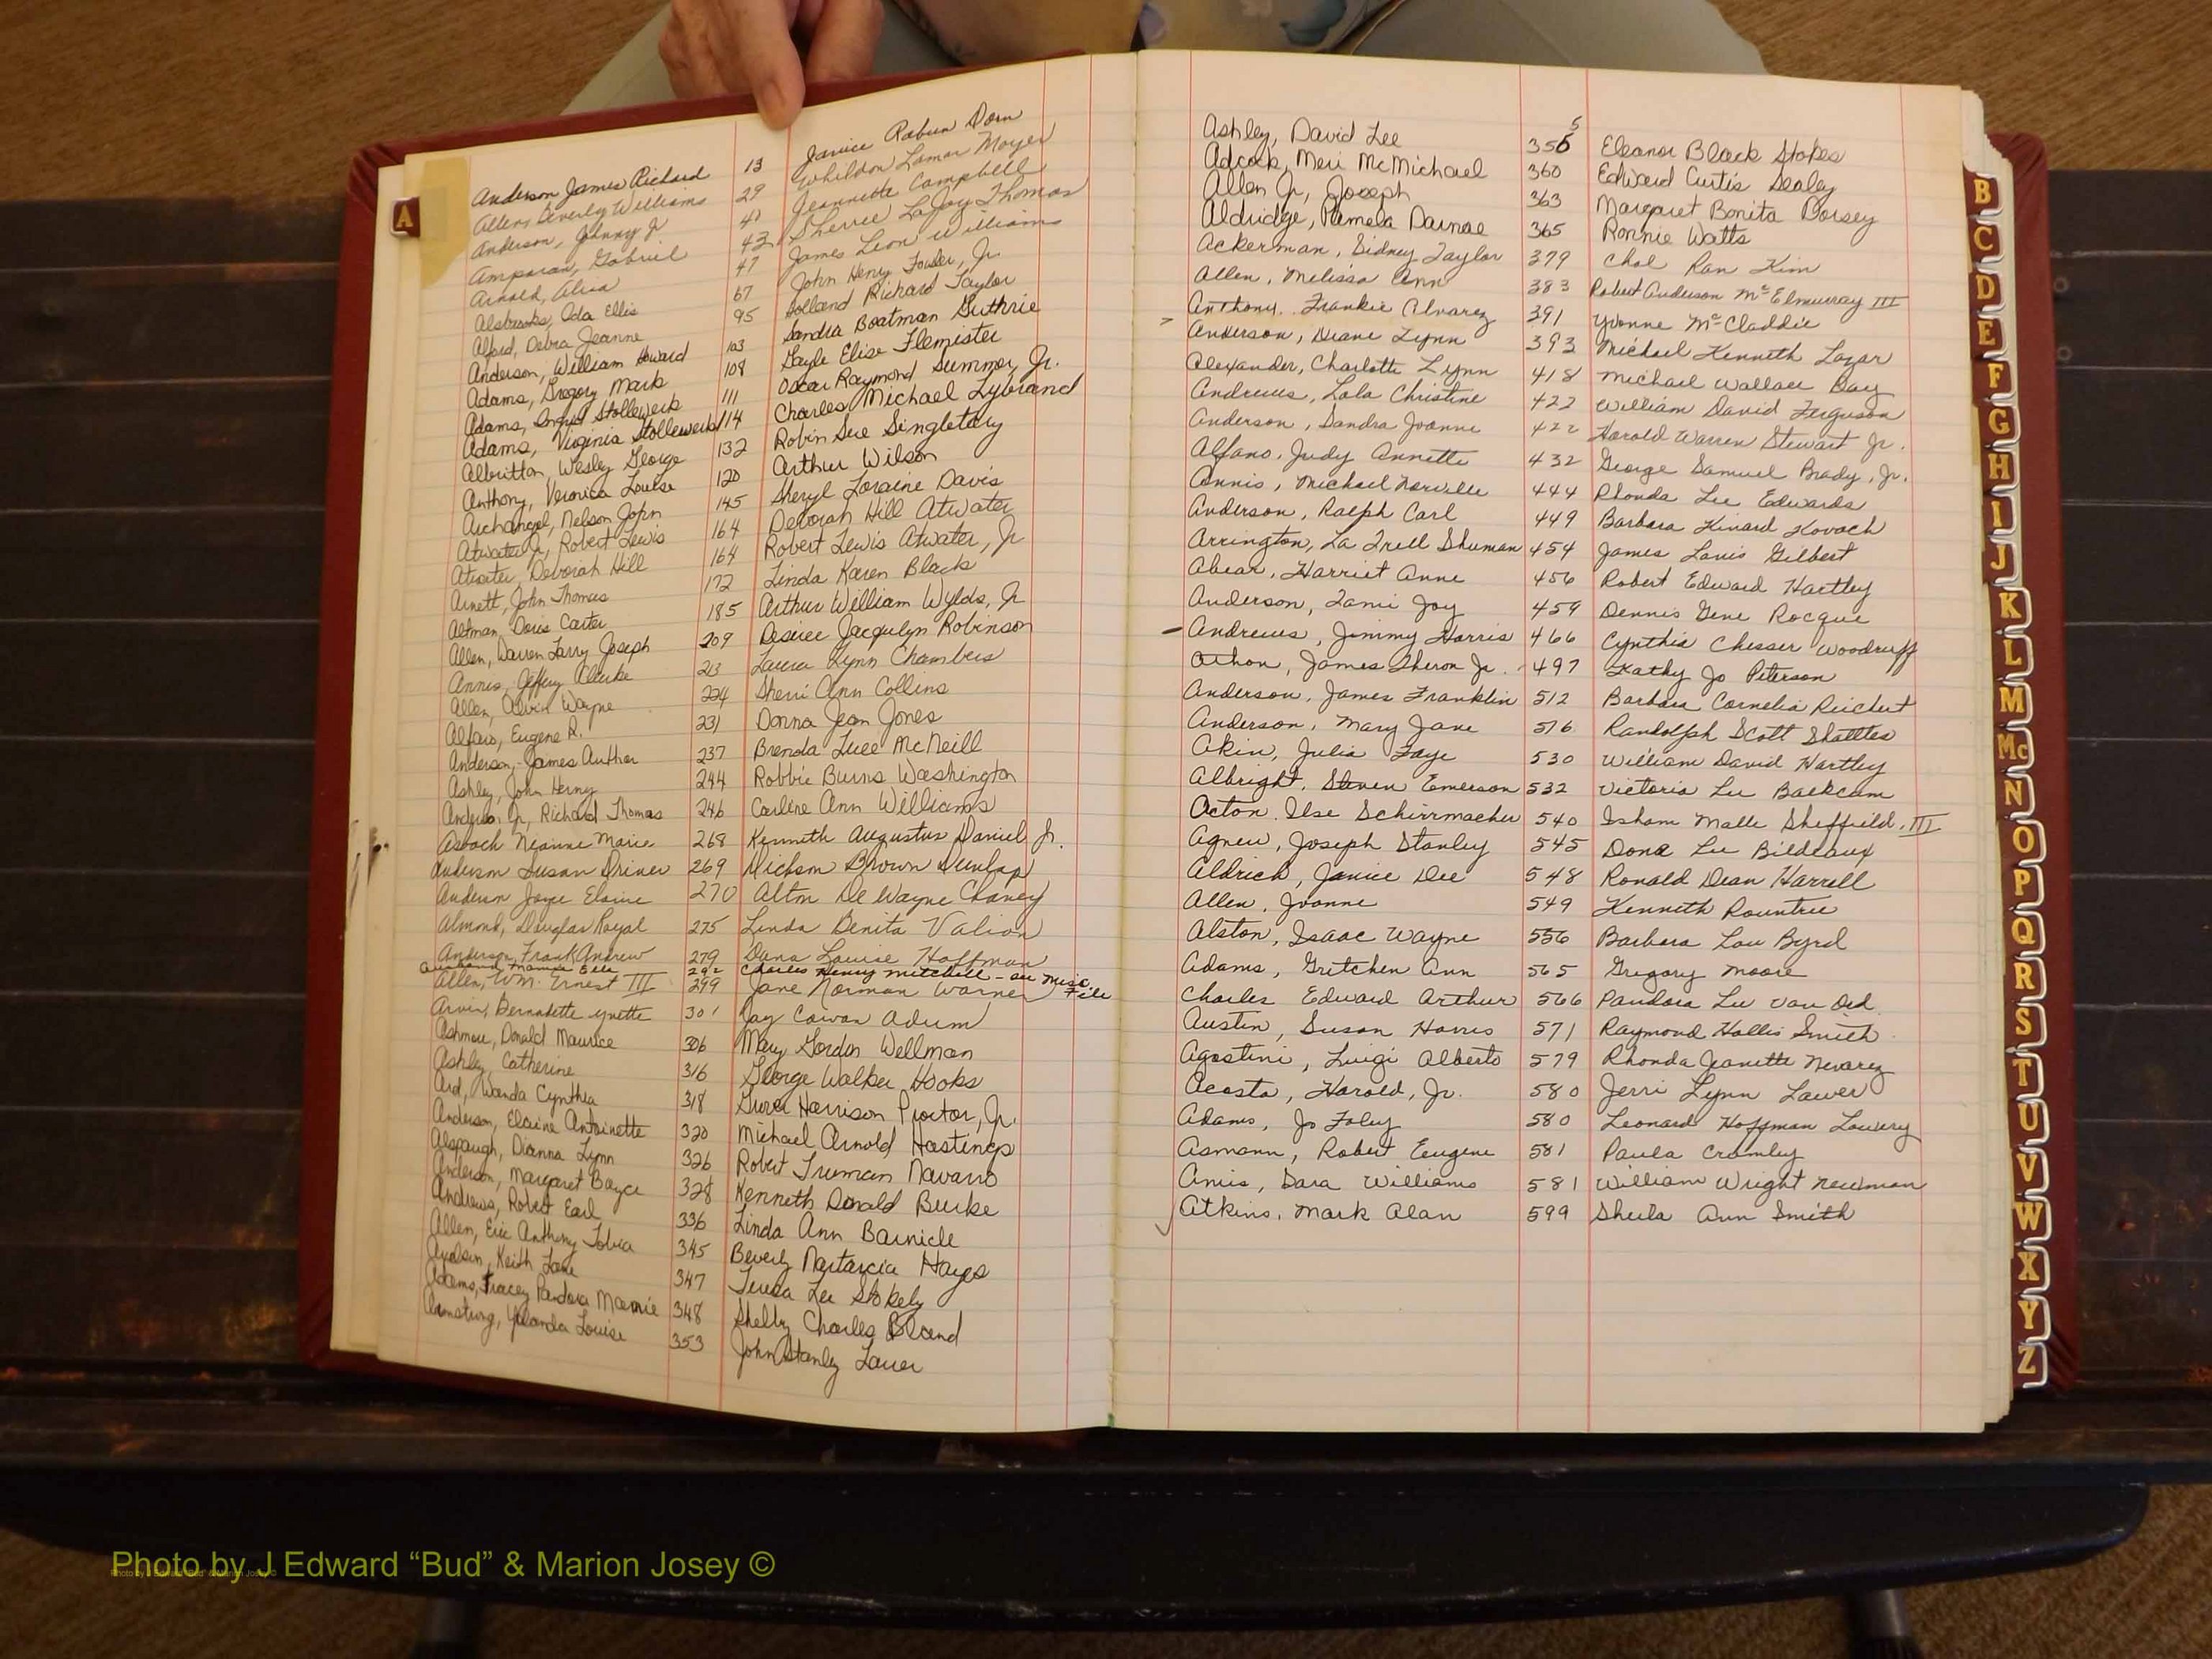 A
Anderson James Richard 13 Janice Rabun Dorn
Allen, Beverly Williams 29 Whildon Lamar Moyer
Anderson, Johnny J 41 Jeannette Campbell
Amparan, Gabriel 43 Sherrie LaJoy Thomas
Arnold, Alisa 47 James Leon Williams
Alsbrooks, Oda Ellis 67 John Henry Fowler, Jr.
Alford, Debra Jeanne 95 Holland Richard Taylor
Anderson, William Howard 103 Sandra Boatman Guthrie
Adams, Gregory Mark 108 Gayle Elise Flemister
Adams, Ingrid Stollewerk 111 Oscar Raymond Summer, Jr.
Adams, Virginia Stollewerk 114 Charles Michael Lybrand
Albritton, Wesley George 132 Robin Sue Singletary
Anthony, Veronica Louise 120 Arthur Wilson
Archangel, Nelson John 145 Sheryl Loraine Davis
Atwater Jr, Robert Lewis 164 Deborah Hill Atwater
Atwater, Deborah Hill 164 Robert Lewis Atwater, Jr
Arnett, John Thomas 172 Linda Karen Black
Altman, Doris Carter 185 Arthur William Wylds, Jr
Allen, Warren Larry Joseph 209 Desiree Jacquelyn Robinson
Annis, Jeffery 213 Laura Lynn Chambers
Allen, Alvin Wayne 224 Sherri Ann Collins
Eugene R. 231 Donna Jean Jones
Anderson, James Author 237 Brenda Luee McNeill
Ashley, John Henry 244 Robbie Burns Washington
Jr, Richard Thomas 246 Carlene Ann Williams
Asbach Neanne Marie 268 Kenneth Augustus Daniel Jr.
Anderson Susan Driver 269 Hickson Brown Dunlap
Anderson Joyce Elaine 270 Alton De Wayne Chaney
Almond, Douglas Royal 275 Linda Benita Valion
Anderson, Frank Andrew 279 Dana Louise Hoffman
Mamie Ella 292 Charles Henry Mitchell - see Misc. File
Allen, Wm. Ernest III 299 Jane Norman Warner
Arvin, Bernadette Yvette 301 Jay Cowan Adum
Ashmore, Donald Maurice 306 Mary Gordon Wellman
Ashley, Catherine 316 George Walker Hooks
Ard, Wanda Cynthia 318 Grover Harrison Proctor, Jr.
Anderson, Elaine Antoinette 320 Michael Arnold Hastings
Alspaugh, Dianna Lynn 326 Robert Truman Navarro
Anderson, Margaret Boyce 328 Kenneth Donald Burke
Andrews, Robert Earl 336 Linda Ann Barnicle
Allen, Eric Anthony Tobia 345 Beverly Nartarcia Hayes
Keith Lane 347 Teresa Lee Stokely
Adams, Tracey Pandora Mamie 348 Shelby Charles Bland
Armstrong, Yolanda Louise 353 John Stanley Laver
Ashley, David Lee 355 Eleanor Black Stokes
Adcock, Meri McMichael 360 Edward Curtis Sealey
Allen Jr, Joseph 363 Margaret Bonita Dorsey
Aldridge, Pamela Darnae 365 Ronnie Watts
Ackerman, Sidney Taylor 379 Chol Ran Kim
Allen, Melissa Ann 383 Robert Anderson McElmurray III
Anthony, Frankie Alvarez 391 Yvonne McCladdie
Anderson, Diane Lynn 393 Michael Kenneth Lazar
Alexander, Charlotte Lynn 418 Michael Wallace Day
Andrews, Lola Christine 422 William David Ferguson
Anderson, Sandra Joanne 422 Harold Warren Stewart Jr.
Alfano, Judy Annette 432 George Samuel Brady, Jr.
Annis, Michael Norville 444 Rhonda Lee Edwards
Anderson, Ralph Carl 449 Barbara Kinard Kovach
Arrington, La Trell Shuman 454 James Louis Gilbert
Abear, Harriet Anne 456 Robert Edward Hartley
Anderson, Tami Joy 459 Dennis Gene Rocque
Andrews, Jimmy Harris 466 Cynthia Chesser Woodruff
James Theron Jr. 497 Kathy Jo Peterson
Anderson, James Franklin 512 Barbara Cornelia Reichert
Anderson, Mary Jane 516 Randolph Scott Shattles
Akin, Julia Faye 530 William David Hartley
Albright, Steven Emerson 532 Victoria Lee Backcam
Acton, Ilse Schirrmacher 540 Isham Malle Sheffield, III
Agnew, Joseph Stanley 545 Dona Lee Bildeaux
Aldrich, Janice Dee 548 Ronald Dean Harrell
Allen, Jvonne 549 Kenneth Rountree
Alston, Isaac Wayne 556 Barbara Lou Byrd
Adams, Gretchen Ann 565 Gregory Moore
Charles Edward Arthur 566 Pandora Lee Van Ord
Austin, Susan Harris 571 Raymond Hollis Smith
Agostini, Luigi Alberto 579 Rhonda Jeanette Nevarez
Acosta, Harold, Jr. 580 Jerri Lynn Lawer
Adams, Jo Foley 580 Leonard Hoffman Lowery
Asmann, Robert Eugene 581 Paula Cromley
Amis, Sara Williams 581 William Wright Newman
Atkins, Mark Alan 599 Sheila Ann Smith
B
C
D
E
F
G
H
I
J
K
L
M
Mc
N
O
P
Q
R
S
T
U
V
W
X
Y
Z
Photo by J Edward “Bud” & Marion Josey ©